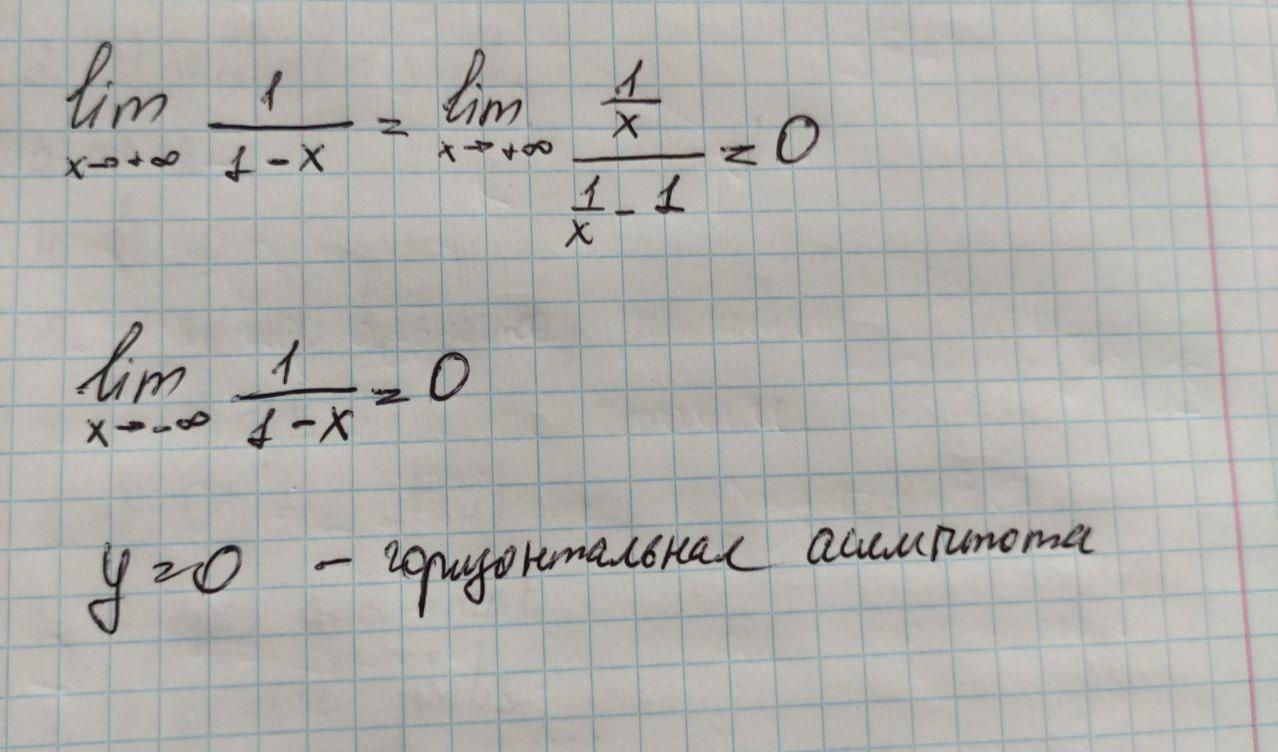 lim x→+∞ 1/(1-x) = lim x→+∞ (1/x)/(1/x - 1) = 0
lim x→-∞ 1/(1-x) = 0
y=0 - горизонтальная асимптота